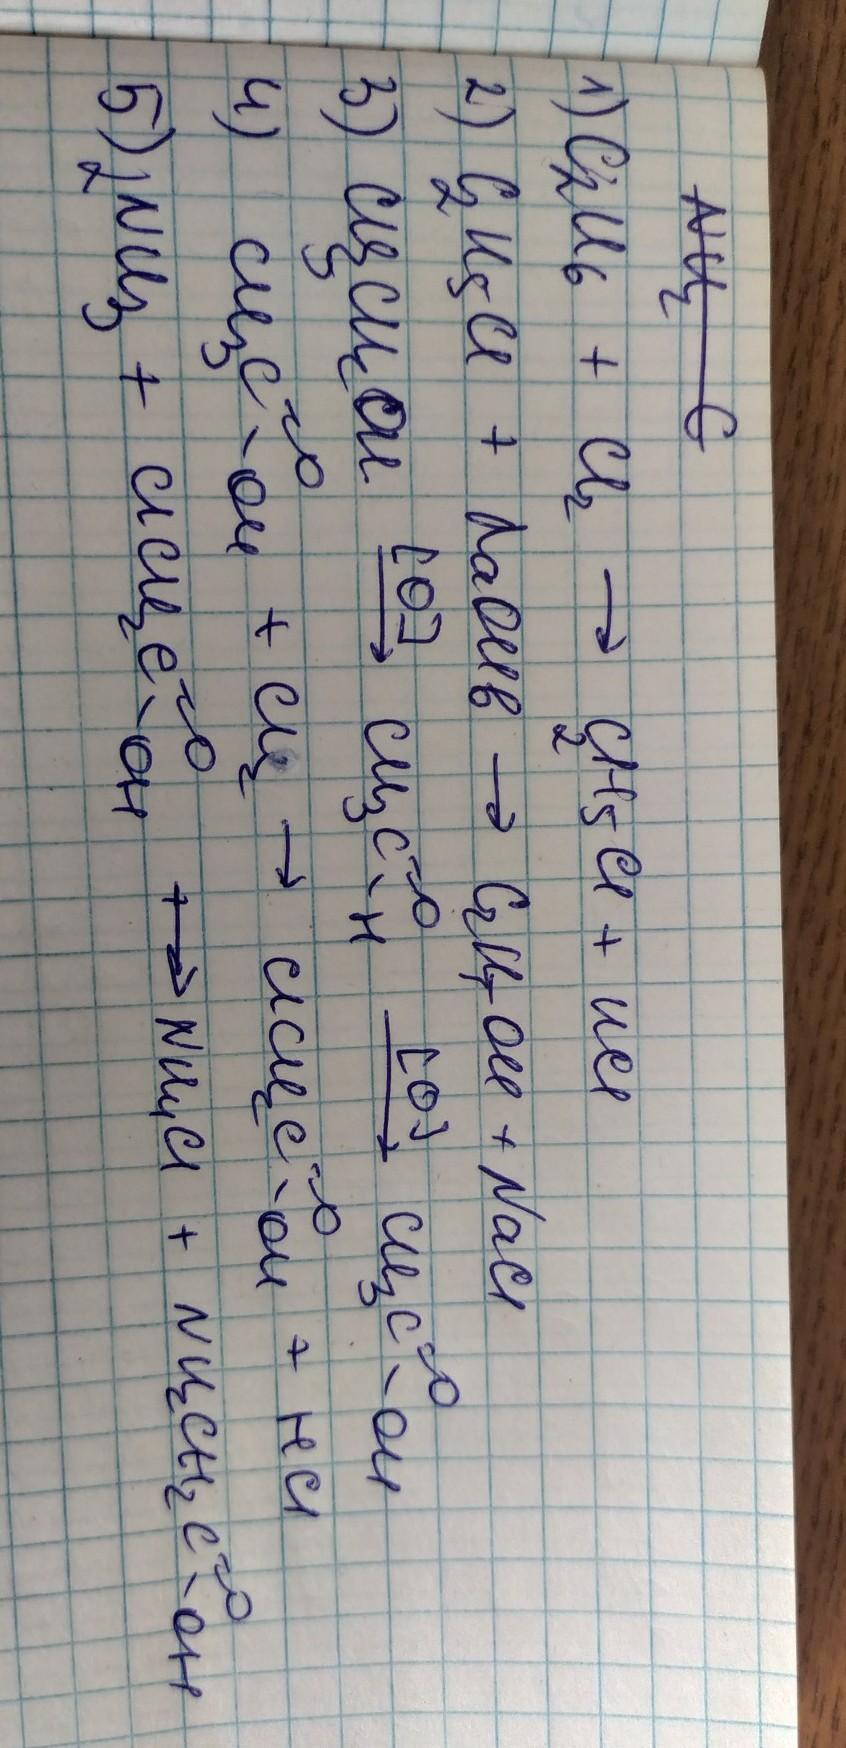 NH₂—C
1) C₂H₆ + Cl₂ → C₂H₅Cl + HCl
2) C₂H₅Cl + NaOHв → C₂H₅OH + NaCl
3) CH₃CH₂OH [O]→ CH₃C=O-H [O]→ CH₃C=O-OH
4) CH₃C=O-OH + Cl₂ → ClCH₂C=O-OH + HCl
5) 2NH₃ + ClCH₂C=O-OH → NH₄Cl + NH₂CH₂C=O-OH